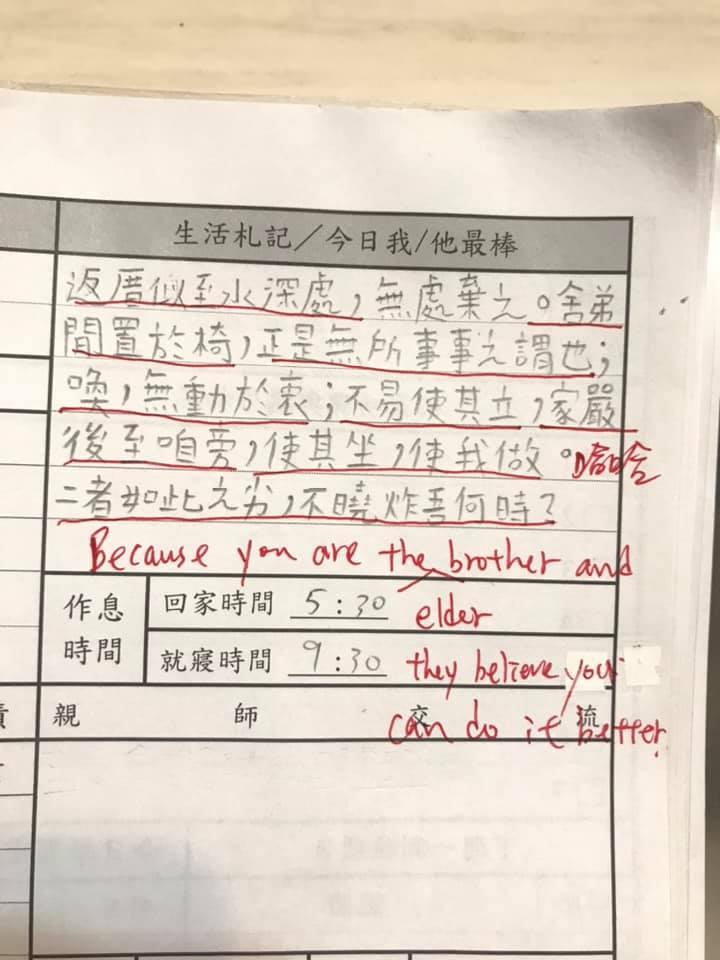 生活札記／今日我/他最棒
返厝似至水深處，無處棄之。舍弟
閒置於椅，正是無所事事之謂也；
喚，無動於衷；不易使其立，家嚴
後至咱旁，使其坐，使我做。哈哈
二者如此之劣，不曉炸吾何時？
Because you are the brother and
elder
作息時間
回家時間 5:30
就寢時間 9:30
they believe you
親師交流
can do it better.